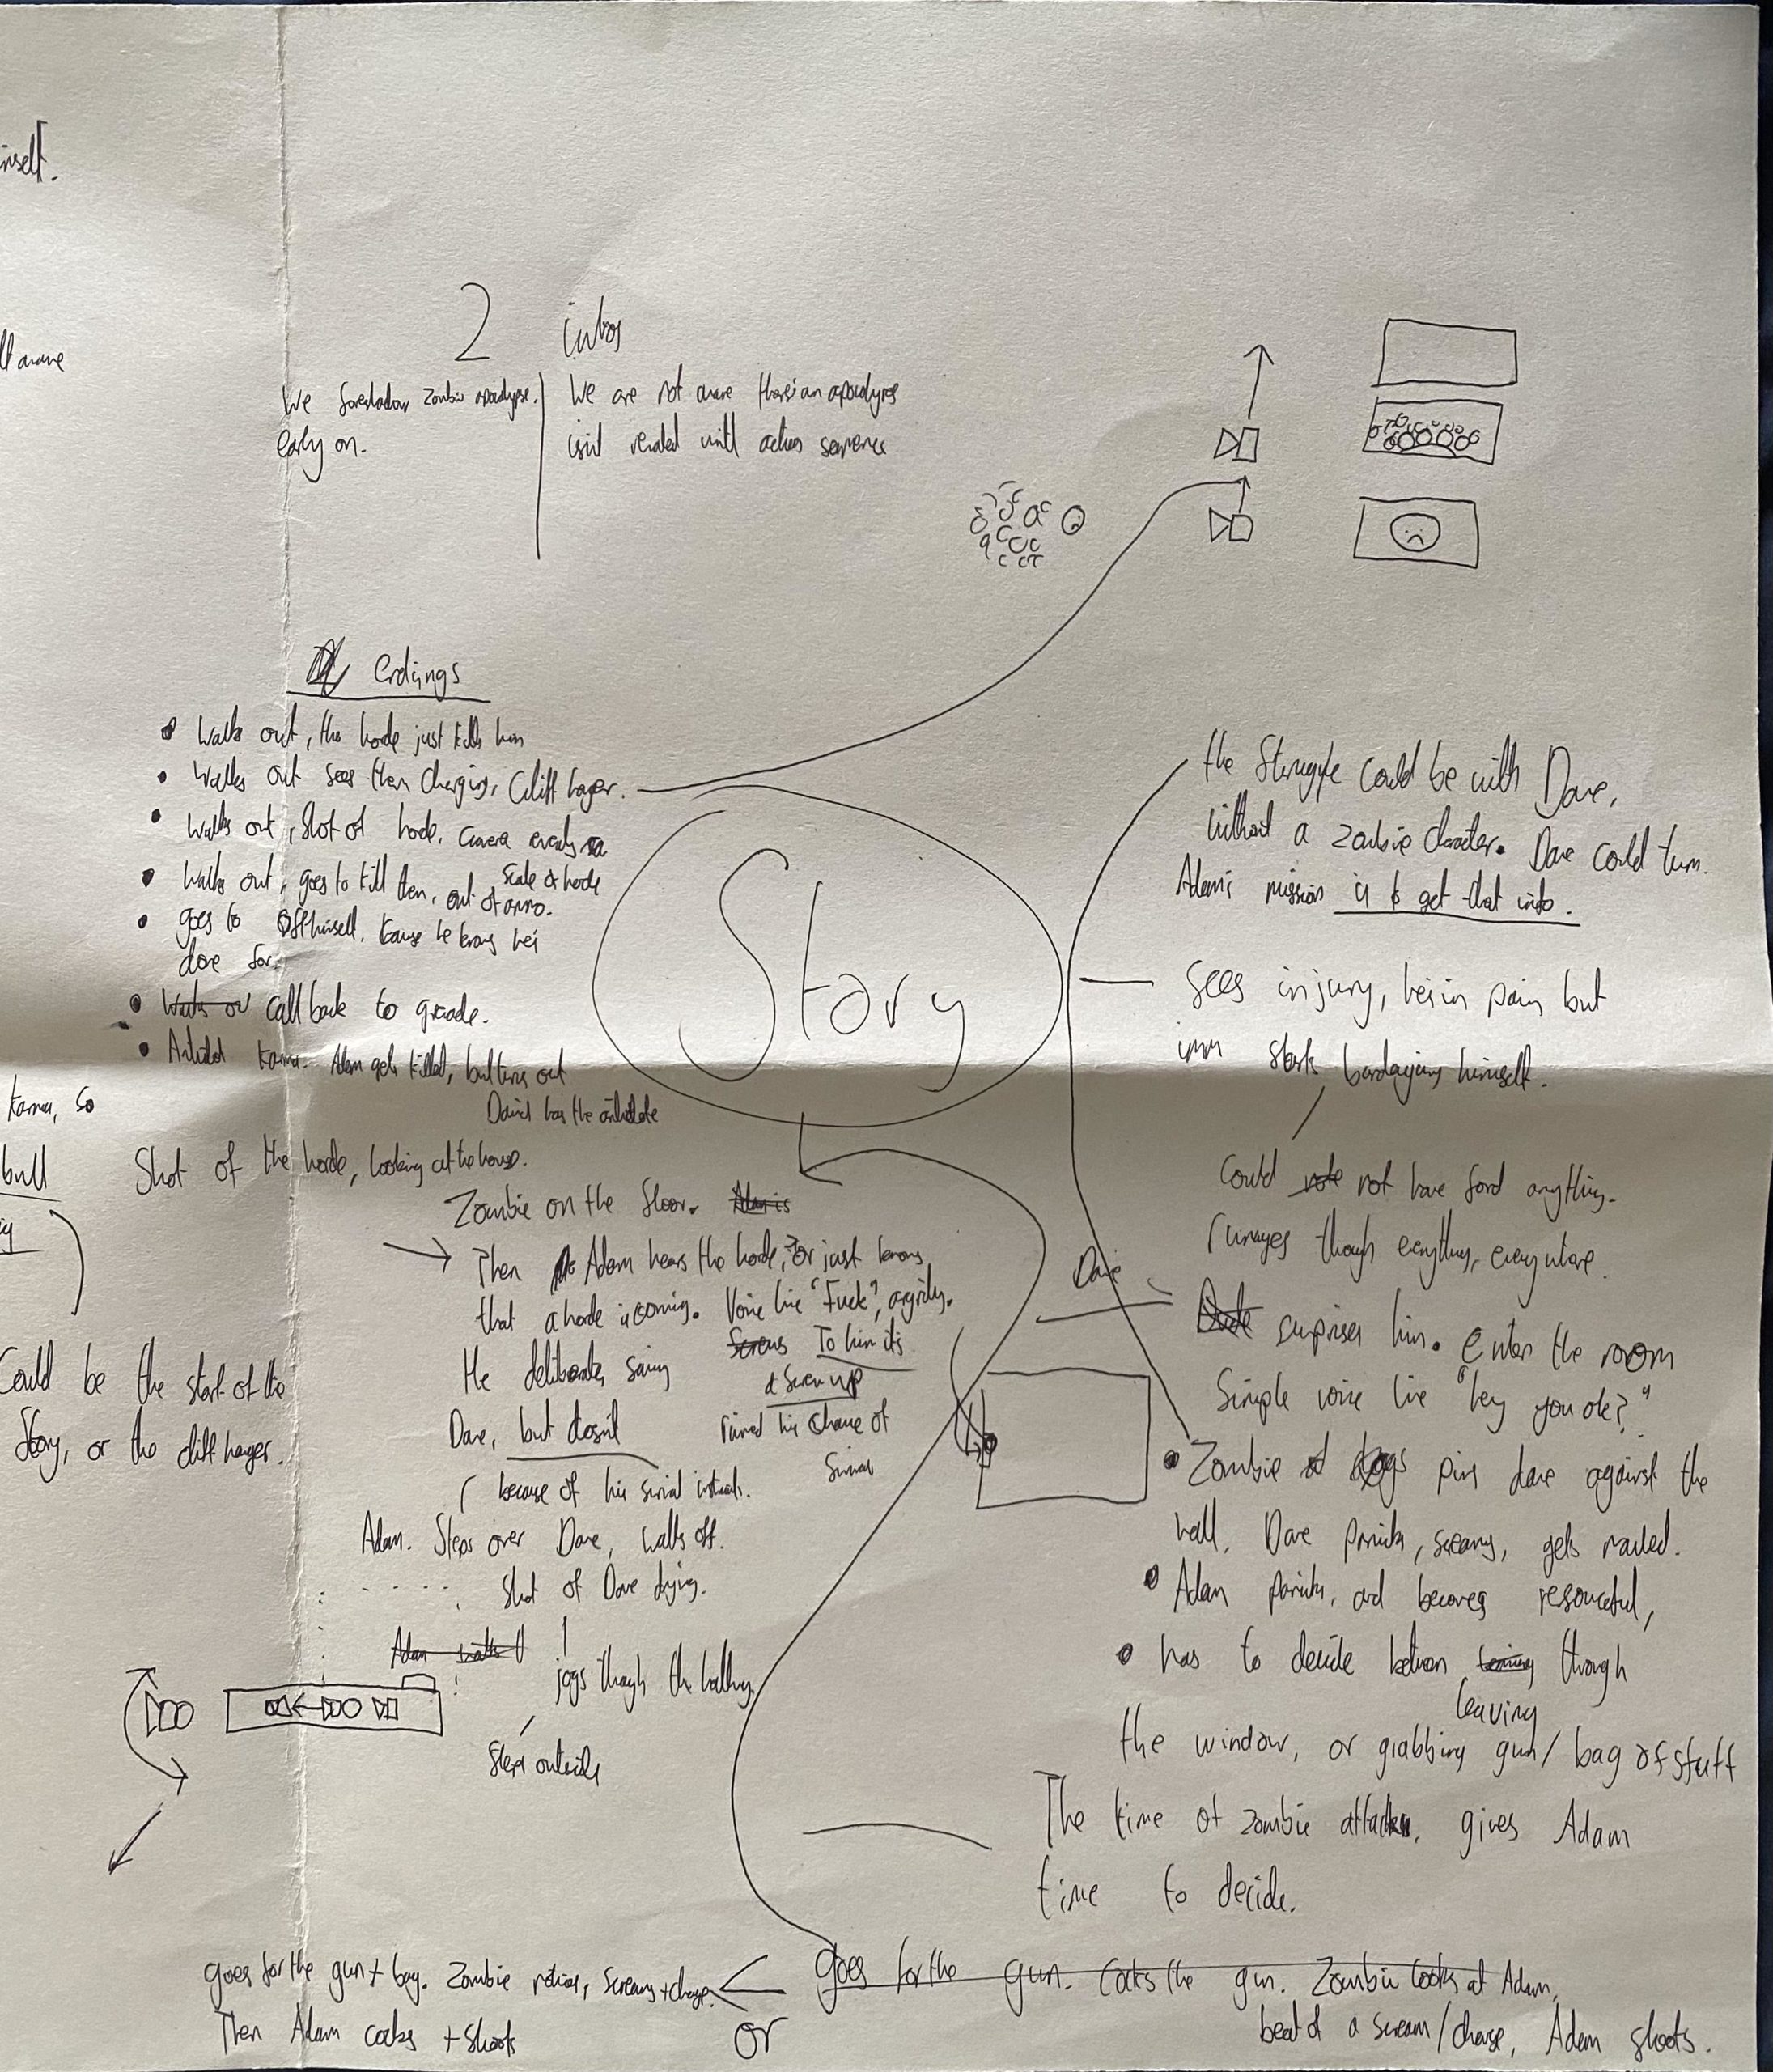 2 intros
We foreshadow Zombie apocalypse.
early on.
We are not aware there's an apocalypse
isn't revealed until action sequence
endings
Walks out, the horde just kills him
Walks out sees them charging, Cliff hanger.
Walks out, Shot of horde. Camera reveals
Scale of horde
Walks out, goes to kill them, out of ammo.
goes to off himself, cause he knows he's
done for.
Walks ou call back to grenade.
Antidote Karma. Adam gets killed, but turns out
David has the antidote
Shot of the horde, looking at the house.
Karma, so
bull
Could be the start of the
Story, or the cliff hanger.
Story
Zombie on the floor. Adam is
Then Adam hears the horde, or just knows
that a horde is coming. Voice line "Fuck", angrily.
He deliberates saving
Dave, but doesn't
Screws To him its
a screw up
ruined his chance of
because of his survival instincts.
Adam. Steps over Dave, walks off.
Shot of Dave dying.
Adam walks
jogs though the hallway
Steps outside
the Struggle could be with Dave,
Without a zombie character. Dave could turn.
Adam's mission is to get that info.
Sees injury, he's in pain but
imm starts bandaging himself.
Could note not have found anything.
rumages though everything, everywhere.
Dave
Dude surprises him. Enters the room
Simple voice line "hey you ok?"
Zombie pins dave against the
wall. Dave panicks, screams, gets mauled.
Adam panicks, and becomes resourceful,
has to decide between through
leaving
the window, or grabbing gun/ bag of stuff
The time of zombie attack, gives Adam
time to decide.
goes for the gun. Cocks the gun. Zombie looks at Adam,
beat of a scream/charge, Adam shoots.
or
goes for the gun + bag. Zombie notices, screams + charge.
Then Adam cocks + shoots